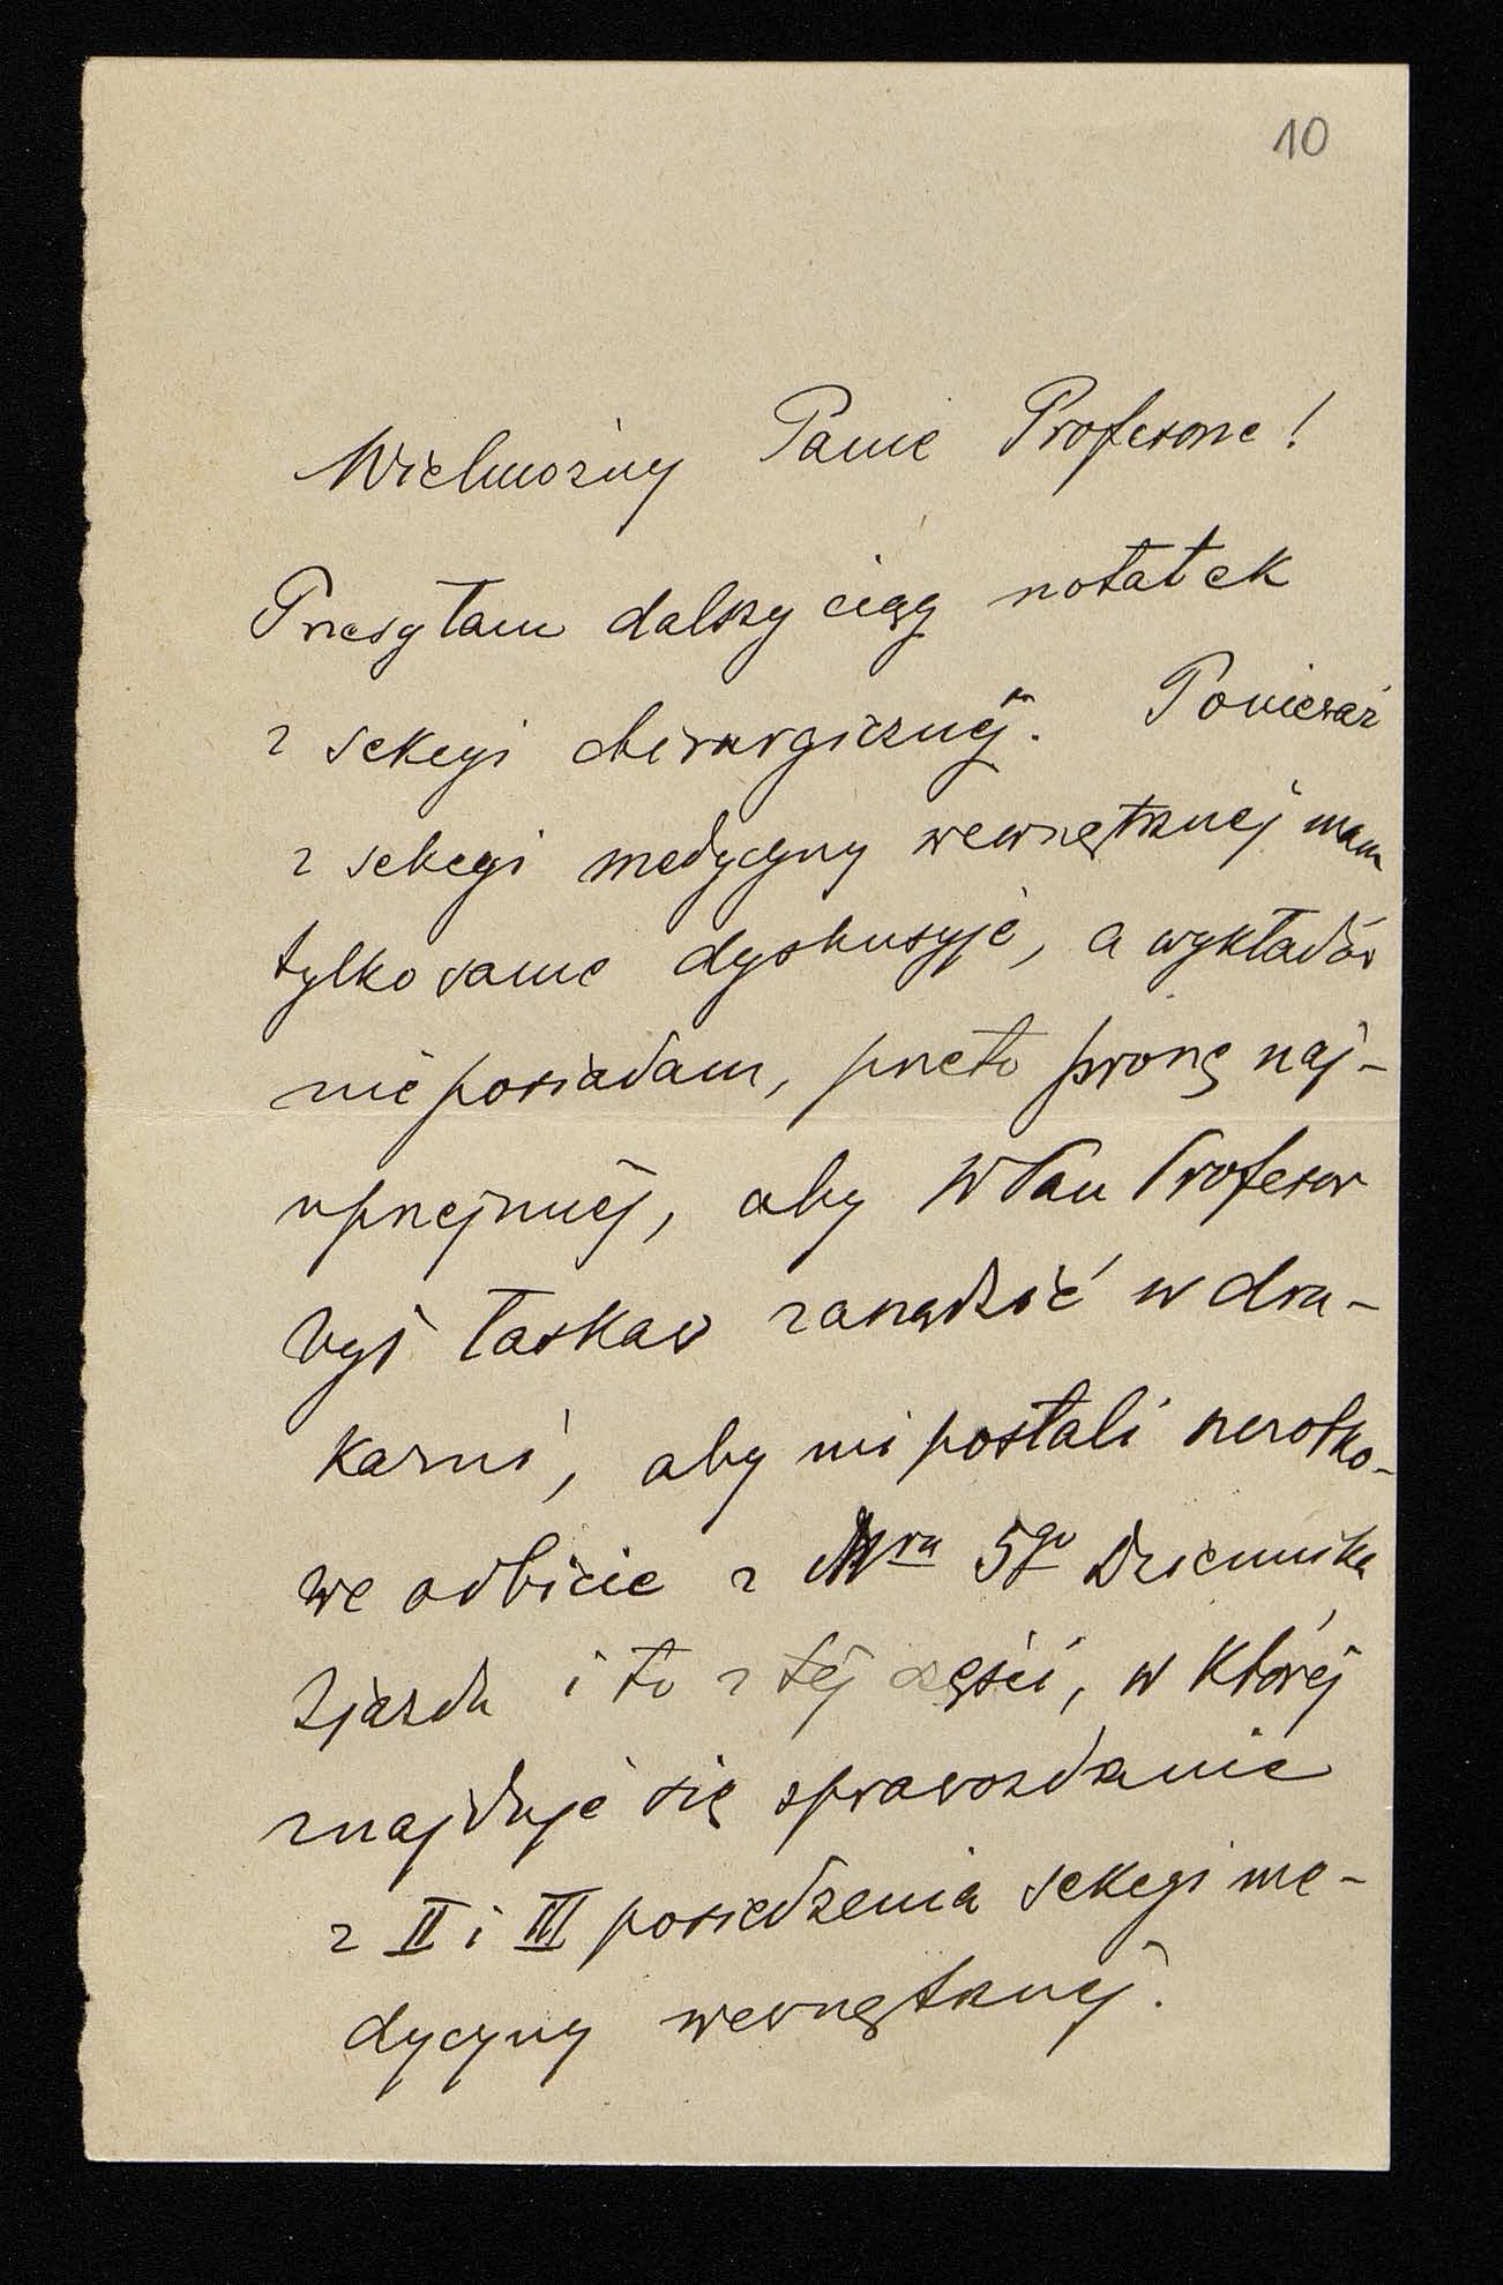 10
Wielmożny Panie Profesorze!
Przesyłam dalszy ciąg notatek
z sekcyi chirurgicznéj. Ponieważ
z sekcyi medycyny wewnętrznéj mam
tylko same dyskusyje, a wykładów
nie posiadam, przeto proszę naj-
uprzejmiéj, aby WPan Profesor
był łaskaw zarządzić w dru-
karni, aby mi posłali szczotko-
we odbicie z Nru 5go Dziennika
Zjazdu i to z téj części, w któréj
znajduje się sprawozdanie
z II i III posiedzenia sekcyi me-
dycyny wewnętrznéj.